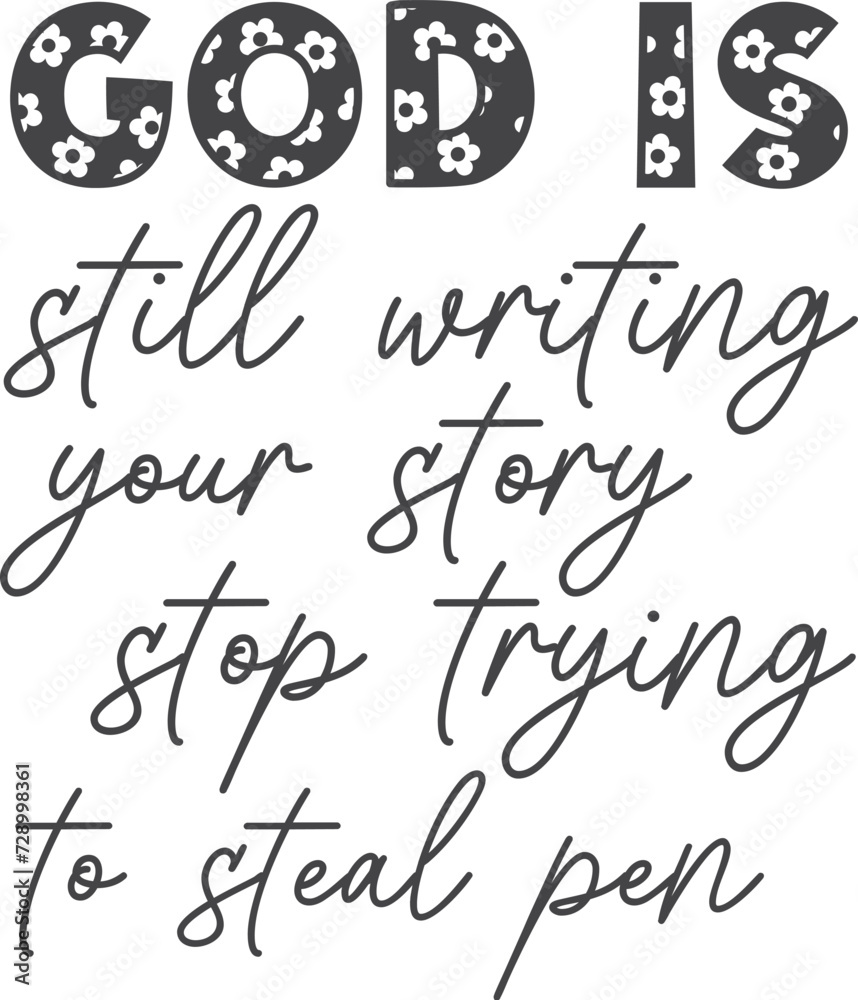 GOD IS
still writing
your story
stop trying
to steal pen
Adobe Stock | #728998361